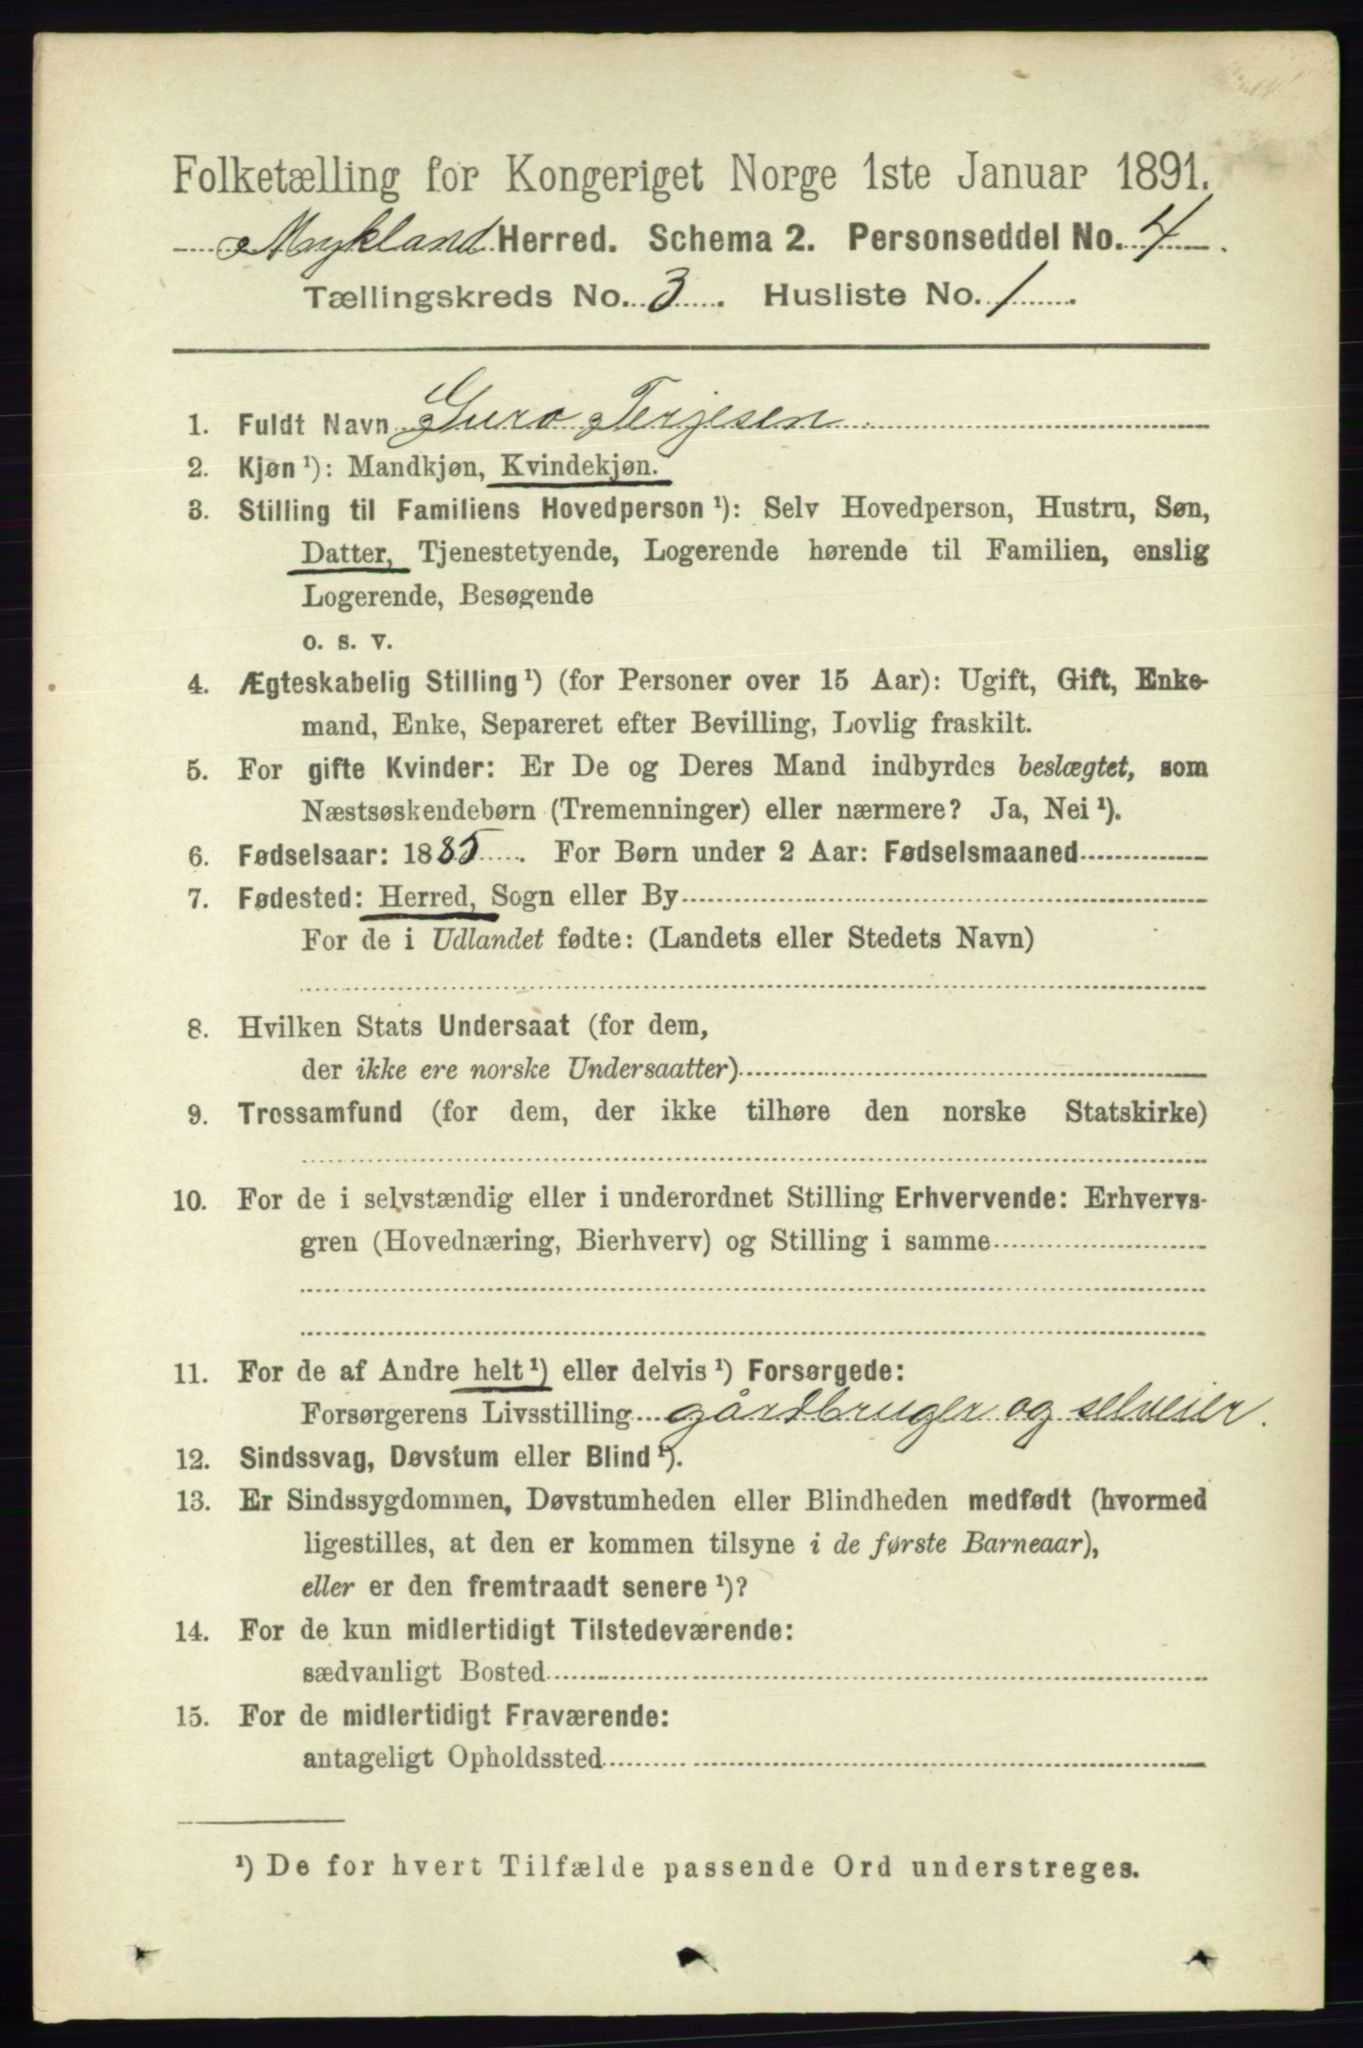 Folketælling for Kongeriget Norge 1ste Januar 1891.
Mykland Herred. Schema 2. Personseddel No. 4.
Tællingskreds No. 3. Husliste No. 1.
1. Fuldt Navn Guro Terjesen
2. Kjøn ¹): Mandkjøn, Kvindekjøn.
3. Stilling til Familiens Hovedperson ¹): Selv Hovedperson, Hustru, Søn,
Datter, Tjenestetyende, Logerende hørende til Familien, enslig
Logerende, Besøgende
o. s. v.
4. Ægteskabelig Stilling ¹) (for Personer over 15 Aar): Ugift, Gift, Enke-
mand, Enke, Separeret efter Bevilling, Lovlig fraskilt.
5. For gifte Kvinder: Er De og Deres Mand indbyrdes beslægtet, som
Næstsøskendebørn (Tremenninger) eller nærmere? Ja, Nei ¹).
6. Fødselsaar: 1885. For Børn under 2 Aar: Fødselsmaaned
7. Fødested: Herred, Sogn eller By
For de i Udlandet fødte: (Landets eller Stedets Navn)
8. Hvilken Stats Undersaat (for dem,
der ikke ere norske Undersaatter)
9. Trossamfund (for dem, der ikke tilhøre den norske Statskirke)
10. For de i selvstændig eller i underordnet Stilling Erhvervende: Erhvervs-
gren (Hovednæring, Bierhverv) og Stilling i samme
11. For de af Andre helt ¹) eller delvis ¹) Forsørgede:
Forsørgerens Livsstilling gårdbruger og selveier.
12. Sindssvag, Døvstum eller Blind ¹).
13. Er Sindssygdommen, Døvstumheden eller Blindheden medfødt (hvormed
ligestilles, at den er kommen tilsyne i de første Barneaar),
eller er den fremtraadt senere ¹)?
14. For de kun midlertidigt Tilstedeværende:
sædvanligt Bosted
15. For de midlertidigt Fraværende:
antageligt Opholdssted
¹) De for hvert Tilfælde passende Ord understreges.